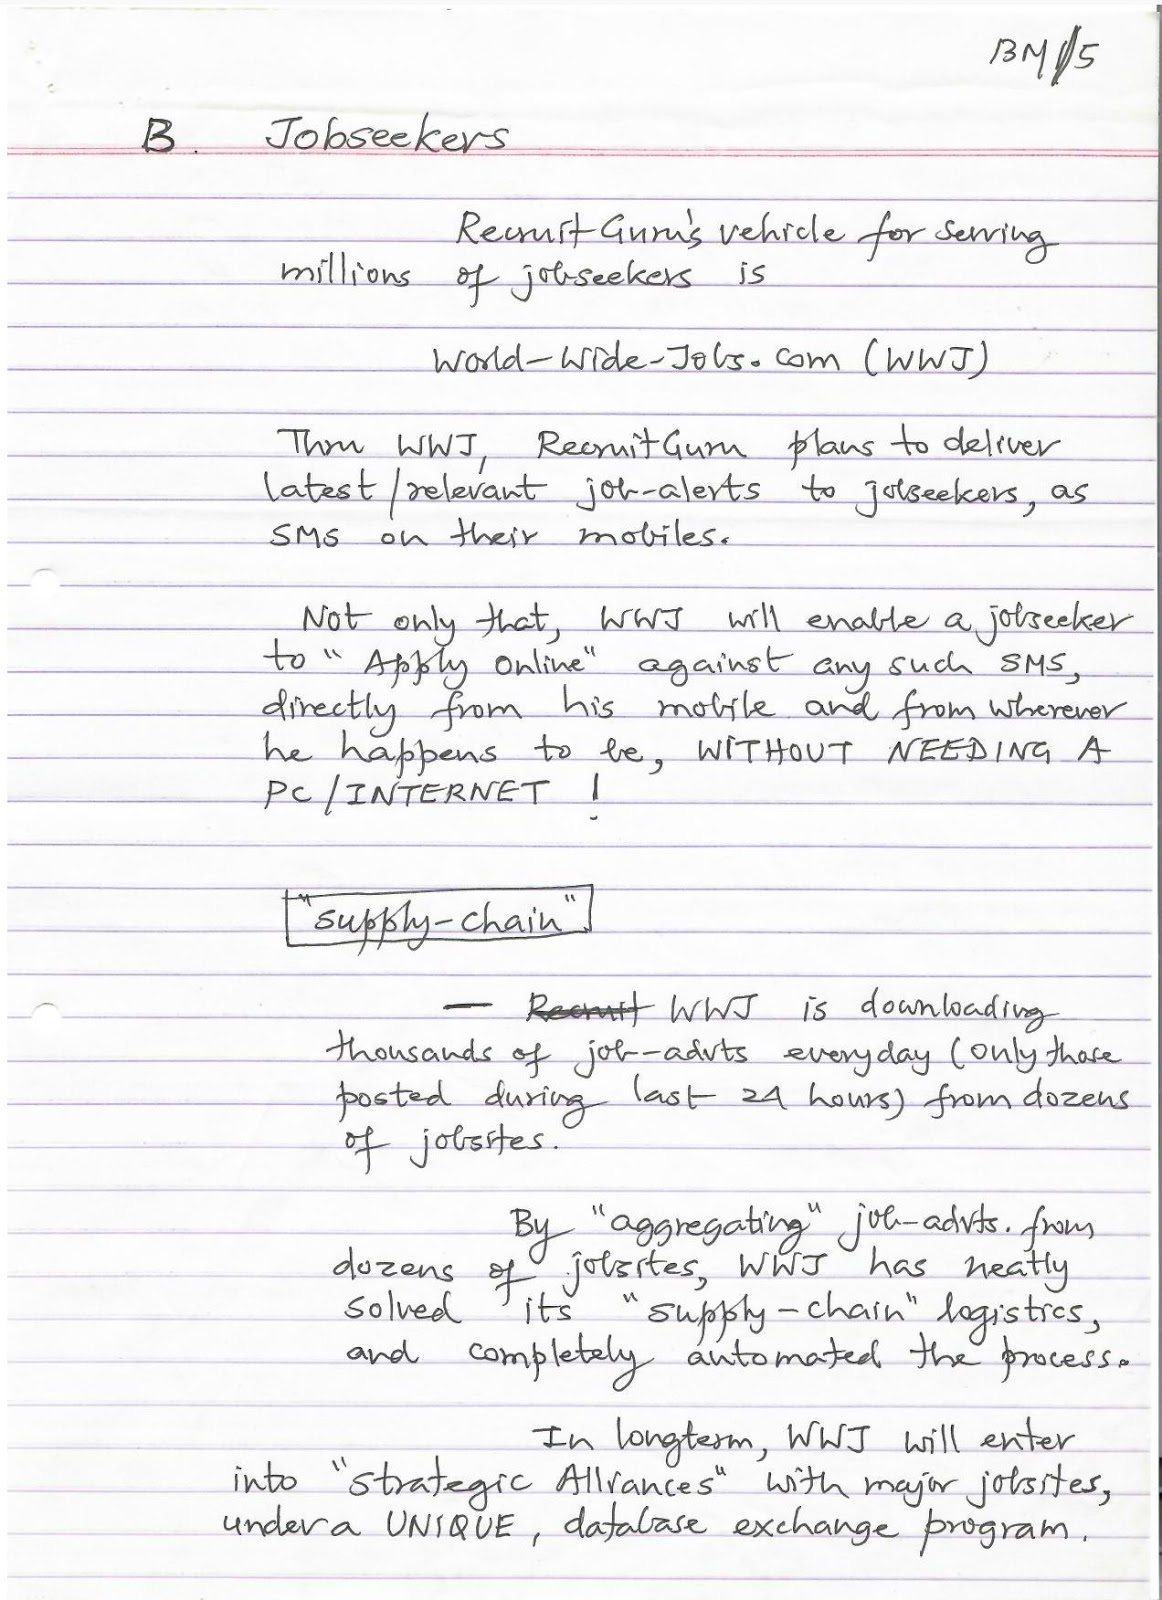 BM/5
B. Jobseekers
RecruitGuru's vehicle for serving
millions of jobseekers is
World-Wide-Jobs.com (WWJ)
Thru WWJ, RecruitGuru plans to deliver
latest/relevant job-alerts to jobseekers, as
SMS on their mobiles.
Not only that, WWJ will enable a jobseeker
to "Apply Online" against any such SMS,
directly from his mobile and from wherever
he happens to be, WITHOUT NEEDING A
PC/INTERNET !
"supply-chain"
— Recruit WWJ is downloading
thousands of job-advts everyday (only those
posted during last 24 hours) from dozens
of jobsites.
By "aggregating" job-advts. from
dozens of jobsites, WWJ has neatly
solved its "supply-chain" logistics,
and completely automated the process.
In longterm, WWJ will enter
into "Strategic Alliances" with major jobsites,
under a UNIQUE, database exchange program.